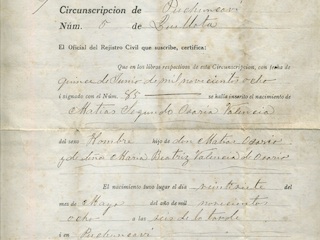 Circunscripcion de Puchuncaví
Núm. 5 de Quillota
El Oficial del Registro Civil que suscribe, certifica:
Que en los libros respectivos de esta Circunscripcion, con fecha de
quince de Junio de mil novecientos ocho
i signado con el Núm. 85 se halla inscrito el nacimiento de
Matias Segundo Osorio Valencia
del sexo Hombre hijo de don Matias Osorio
y de doña Maria Beatriz Valencia de Osorio
El nacimiento tuvo lugar el dia veintisiete del
mes de Mayo del año de mil novecientos
ocho a las seis de la tarde
i en Puchuncaví